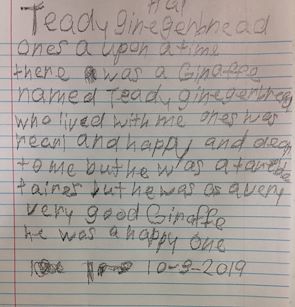 Hal
Teady gin-egerbread
ones a upon a time
there was a Giraffe
named Teady gin-egerbread
who lived with me ones was
and happy and
to me but he was a
but he was os a very
very good Giraffe
he was a happy one
10-9-2019